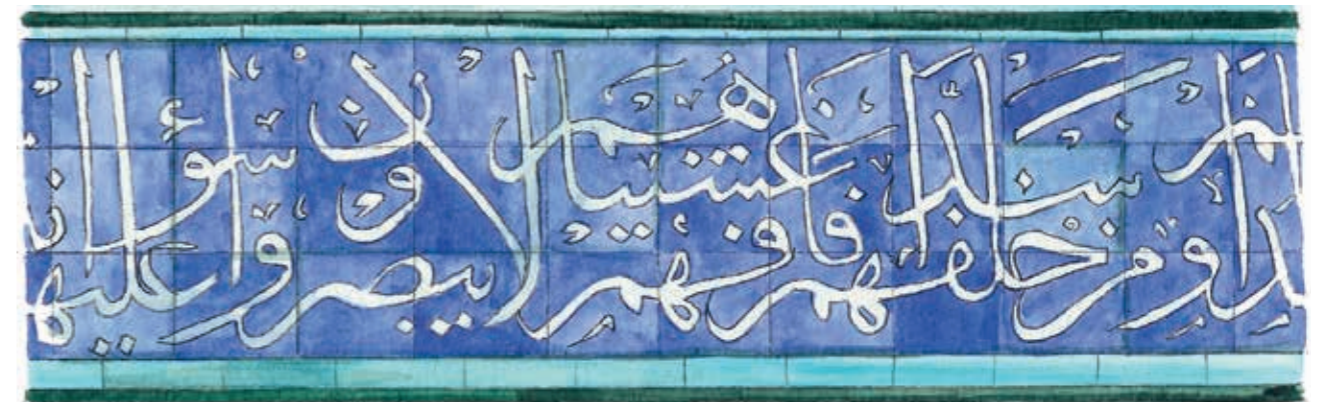 ومن خلفهم سدا فاغشيناهم فهم لا يبصرون وسواء عليهم